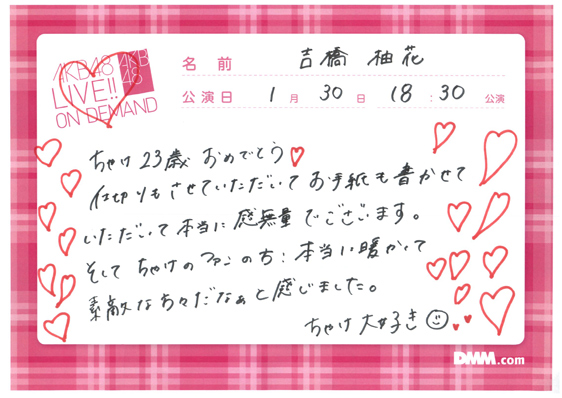 AKB48 LIVE!! ON DEMAND
AKB48
名 前 吉橋 柚花
公演日 1月 30日 18:30 公演
ちゃけ 23歳 おめでとう
仕切りもさせていただいて お手紙も書かせて
いただいて 本当に感無量でございます。
そして ちゃけのファンの方、本当に暖かくて
素敵な方々だなぁと感じました。
ちゃけ 大好き
DMM.com